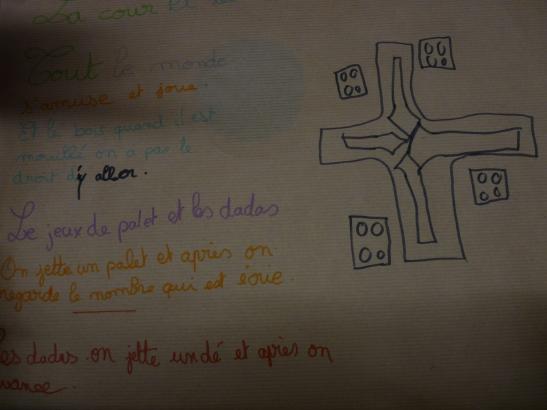 La cour et le
Tout le monde
s'amuse et joue.
Et le bois quand il est
mouillé on a pas le
droit d'y aller.
Le jeux de palet et les dadas
On jette un palet et après on
regarde le nombre qui est
es dadas on jette un dé et après on
vance.